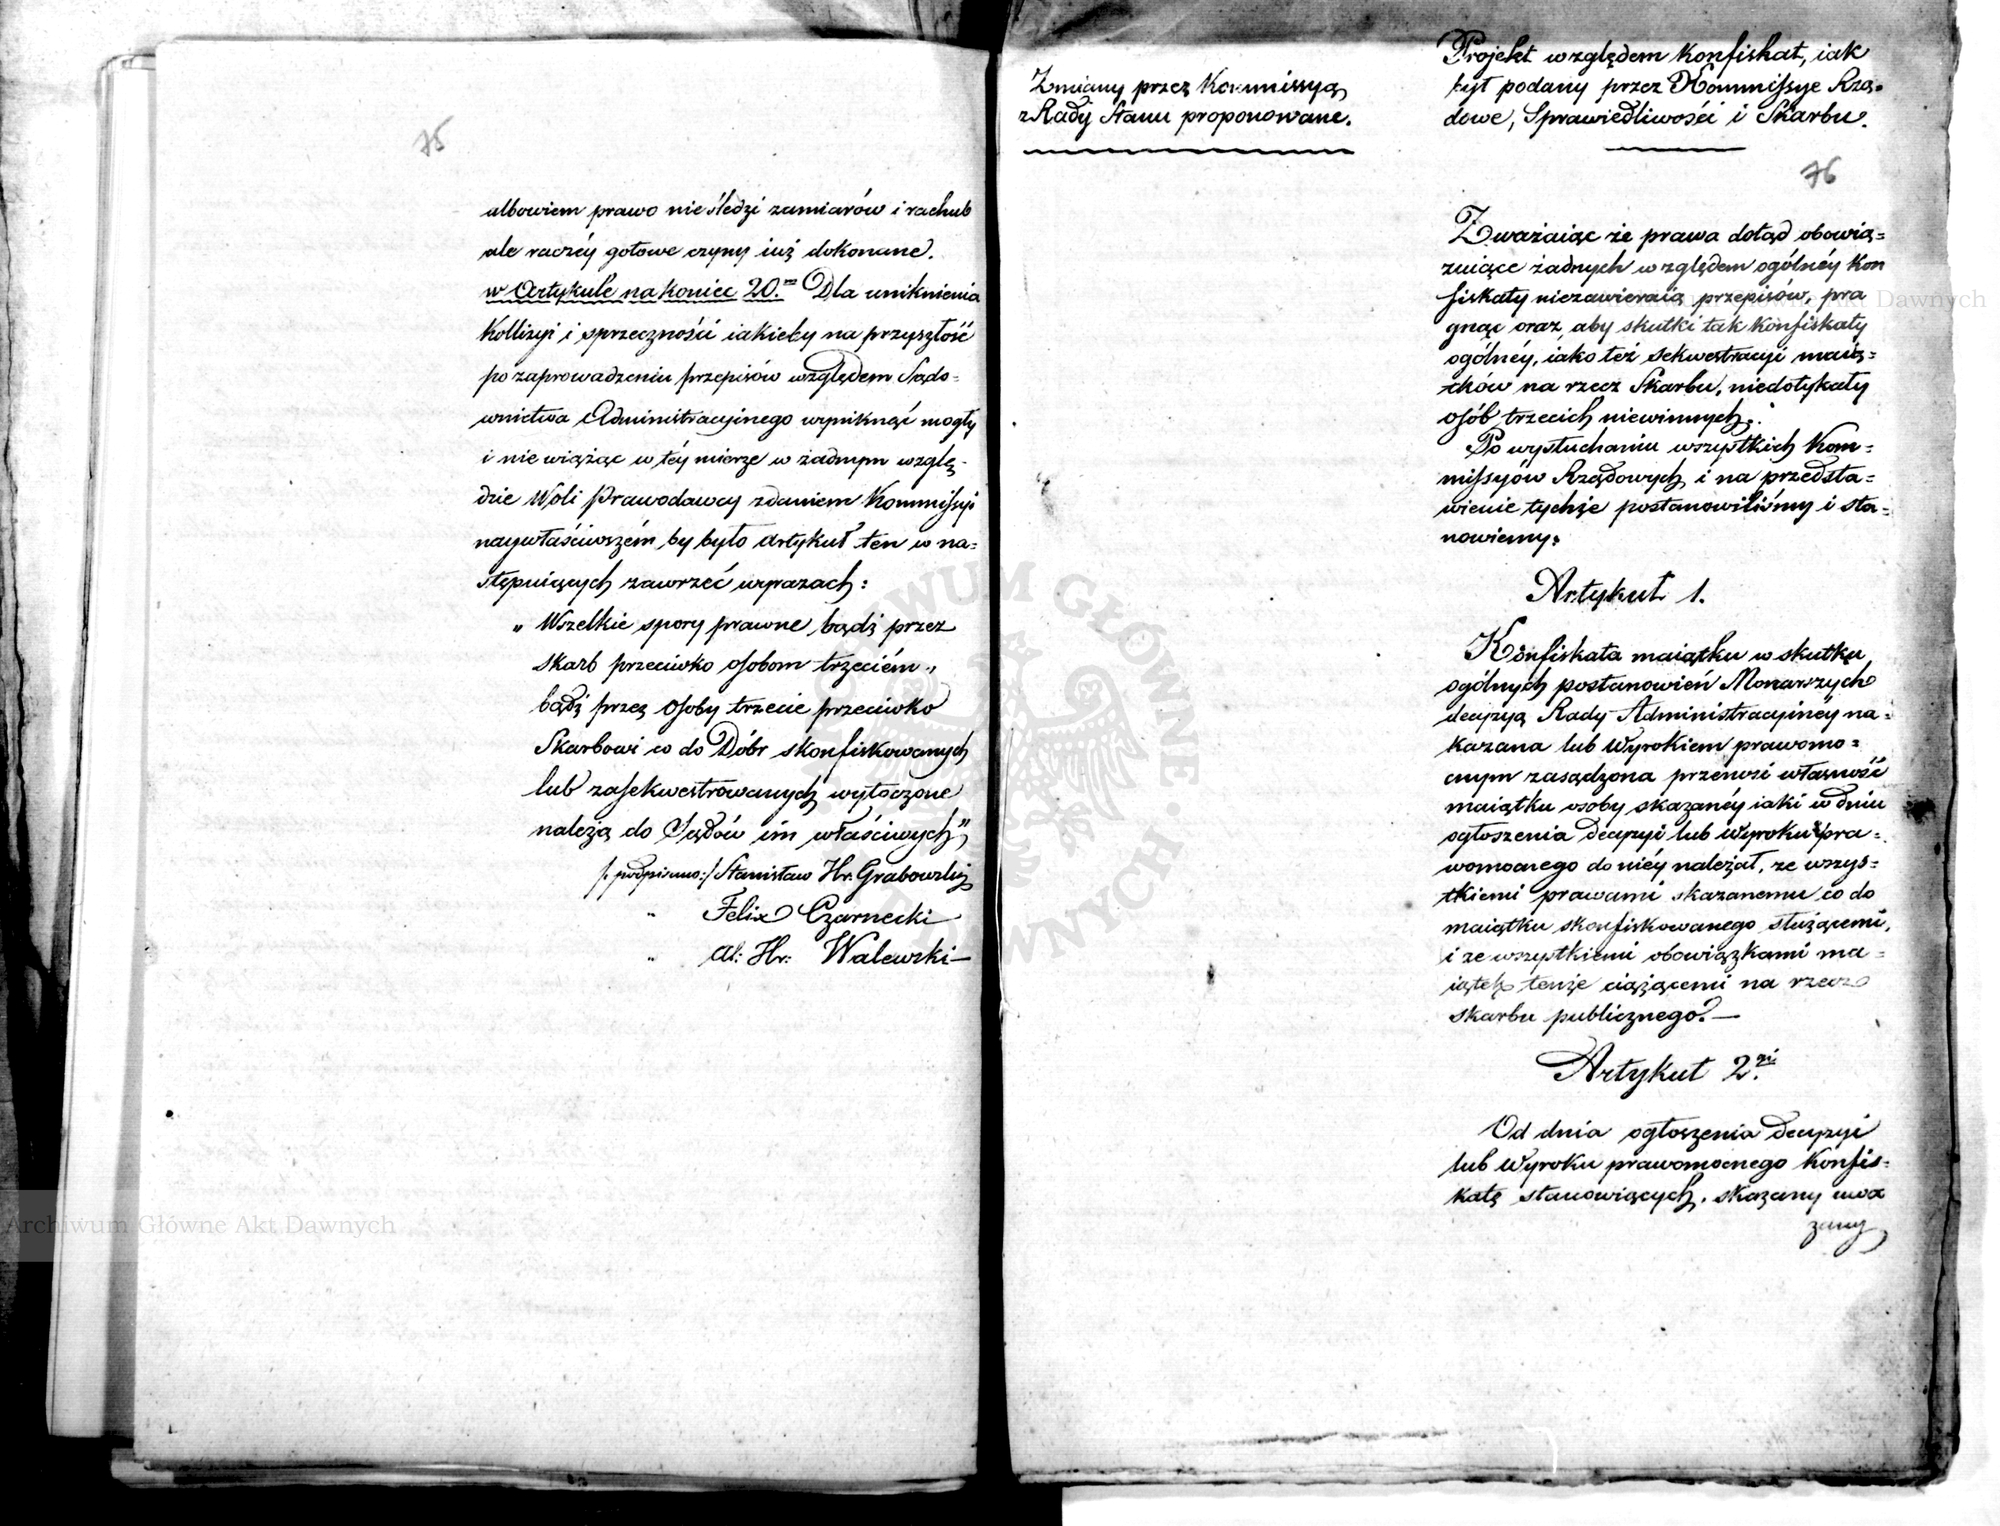 75
albowiem prawo nie śledzi zamiarów i rachub
ale raczéy gotowe czyny iuż dokonane.
w Artykule nakoniec 20.m Dla uniknienia
Kollizyi i sprzeczności iakieby na przyszłość
po zaprowadzeniu przepisów względem Sądo=
wnictwa Administracyinego wyniknąć mogły
i nie wiążąc w téy mierze w żadnym wzglę-
dzie Woli Prawodawcy zdaniem Kommissyi
naywłaściwszém by było Artykuł ten w na=
stępuiących zawrzeć wyrazach:
„ Wszelkie spory prawne bądź przez
skarb przeciwko osobom trzeciém,
bądź przez Osoby trzecie przeciwko
Skarbowi co do Dóbr skonfiskowanych
lub zasekwestrowanych wytoczone
należą do Sądów im właściwych”
/: podpisano:/ Stanisław Hr. Grabowski
" Felix Czarnecki
" Al: Hr: Walewski
Zmiany przez Kommissyą
z Rady Stanu proponowane.
Projekt względem Konfiskat, iak
był podany przez Kommissye Rzą=
dowe, Sprawiedliwości i Skarbu.
76
Zważaiąc że prawa dotąd obowią=
zuiące żadnych względem ogólnéy Kon
fiskaty niezawieraią przepisów, pra
gnąc oraz, aby skutki tak Konfiskaty
ogólnéy, iako też sekwestracyi maią=
tków na rzecz Skarbu, niedotykały
osób trzecich niewinnych;
Po wysłuchaniu wszystkich Kom=
missyów Rządowych i na przedsta=
wienie tychże postanowiliśmy i sta=
nowiemy:
Artykuł 1.
Konfiskata maiątku w skutku
ogólnych postanowień Monarszych
decyzyą Rady Administracyinéy na=
kazana lub Wyrokiem prawomo=
cnym zasądzona przenosi własność
maiątku osoby skazanéy iaki w dniu
ogłoszenia decyzyi lub Wyroku pra=
womocnego do niéy należał, ze wszys=
tkiemi prawami skazanemu co do
maiątku skonfiskowanego służącemi,
i ze wszystkiemi obowiązkami ma=
iątek tenże ciążącemi na rzecz
skarbu publicznego.
Artykuł 2gi.
Od dnia ogłoszenia decyzyi
lub Wyroku prawomocnego Konfis=
katę stanowiących, skazany uwa
żany
Archiwum Główne Akt Dawnych